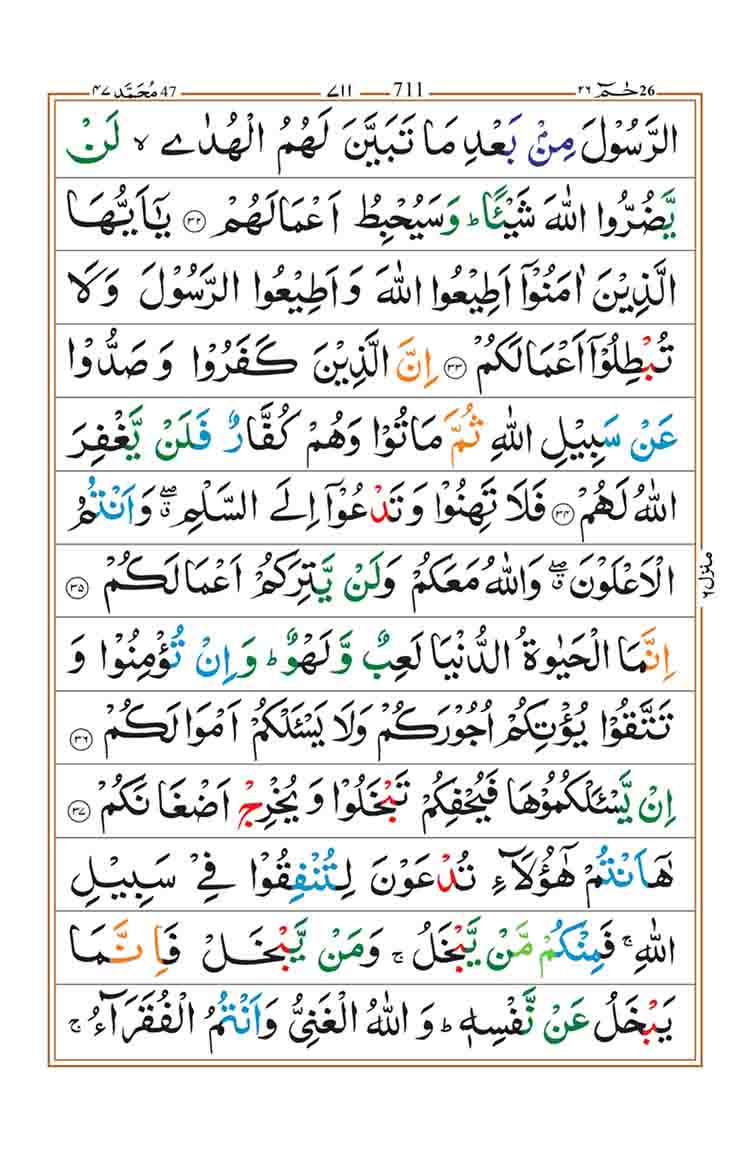 حٰمٓ 26 ۲۶ 711 ۷۱۱ مُحَمَّد 47 ۴۷
الرَّسُوۡلَ مِنۡۢ بَعۡدِ مَا تَبَيَّنَ لَهُمُ الۡهُدٰى ۙ لَنۡ
يَّضُرُّوا اللّٰهَ شَيۡـًٔا ؕ وَسَيُحۡبِطُ اَعۡمَالَهُمۡ ۝۳۲ يٰۤاَيُّهَا
الَّذِيۡنَ اٰمَنُوۡۤا اَطِيۡعُوا اللّٰهَ وَاَطِيۡعُوا الرَّسُوۡلَ وَلَا
تُبۡطِلُوۡۤا اَعۡمَالَكُمۡ ۝۳۳ اِنَّ الَّذِيۡنَ كَفَرُوۡا وَصَدُّوۡا
عَنۡ سَبِيۡلِ اللّٰهِ ثُمَّ مَاتُوۡا وَهُمۡ كُفَّارٌ فَلَنۡ يَّغۡفِرَ
اللّٰهُ لَهُمۡ ۝۳۴ فَلَا تَهِنُوۡا وَتَدۡعُوۡۤا اِلَى السَّلۡمِ ۖۗ وَاَنۡتُمُ
الۡاَعۡلَوۡنَ ۖۗ وَاللّٰهُ مَعَكُمۡ وَلَنۡ يَّتِرَكُمۡ اَعۡمَالَكُمۡ ۝۳۵
اِنَّمَا الۡحَيٰوةُ الدُّنۡيَا لَعِبٌ وَّلَهۡوٌ ؕ وَاِنۡ تُؤۡمِنُوۡا وَ
تَتَّقُوۡا يُؤۡتِكُمۡ اُجُوۡرَكُمۡ وَلَا يَسۡـَٔلۡكُمۡ اَمۡوَالَكُمۡ ۝۳۶
اِنۡ يَّسۡـَٔلۡكُمُوۡهَا فَيُحۡفِكُمۡ تَبۡخَلُوۡا وَيُخۡرِجۡ اَضۡغَانَكُمۡ ۝۳۷
هٰۤاَنۡتُمۡ هٰٓؤُلَآءِ تُدۡعَوۡنَ لِتُنۡفِقُوۡا فِىۡ سَبِيۡلِ
اللّٰهِ ۚ فَمِنۡكُمۡ مَّنۡ يَّبۡخَلُ ۚ وَمَنۡ يَّبۡخَلۡ فَاِنَّمَا
يَبۡخَلُ عَنۡ نَّفۡسِهٖ ؕ وَاللّٰهُ الۡغَنِىُّ وَاَنۡتُمُ الۡفُقَرَآءُ ۚ
منزل ۶